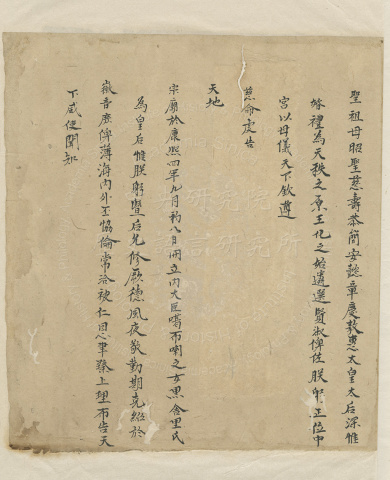 聖祖母昭聖慈壽恭簡安懿章慶敦惠太皇太后深惟
婚禮為天秩之原王化之始遴選賢淑俾佐朕躬正位中
宮以母儀天下欽遵
慈命虔告
天地
宗廟於康熙四年九月初八日冊立內大臣噶布喇之女黑舍里氏
為皇后惟朕躬暨后允修厥德夙夜敬勤期克紹於
徽音庶俾薄海內外丕協倫常洽被仁恩聿臻上理布告天
下咸使聞知